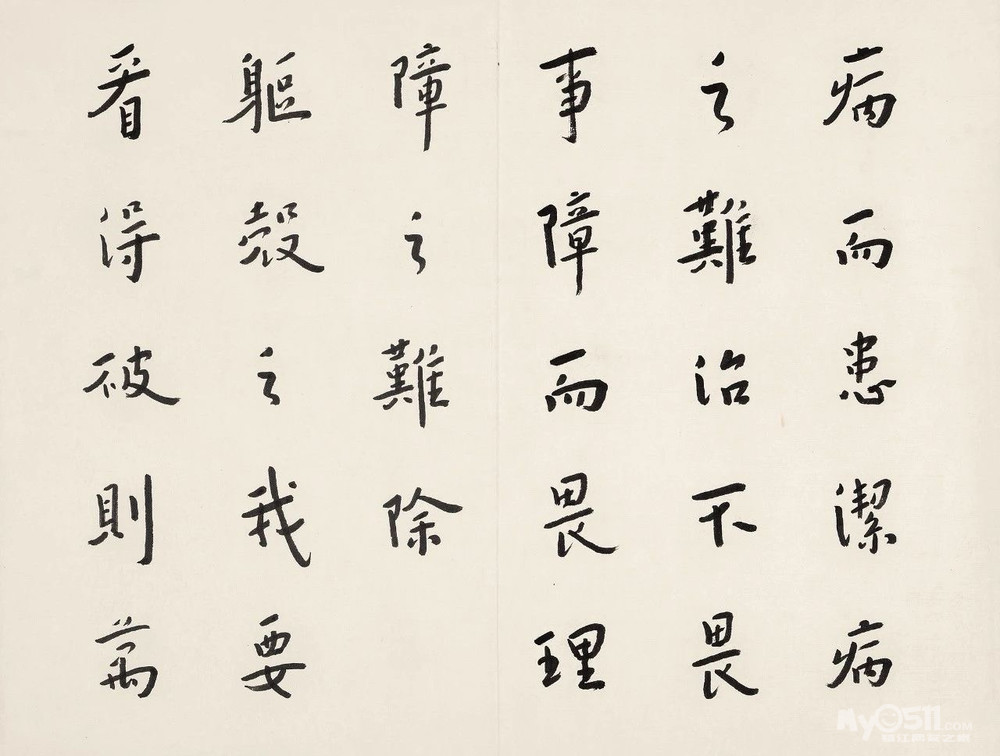 病而患潔病
之難治不畏
事障而畏理
障之難除
軀殼之我要
看得破則萬
My0511.COM